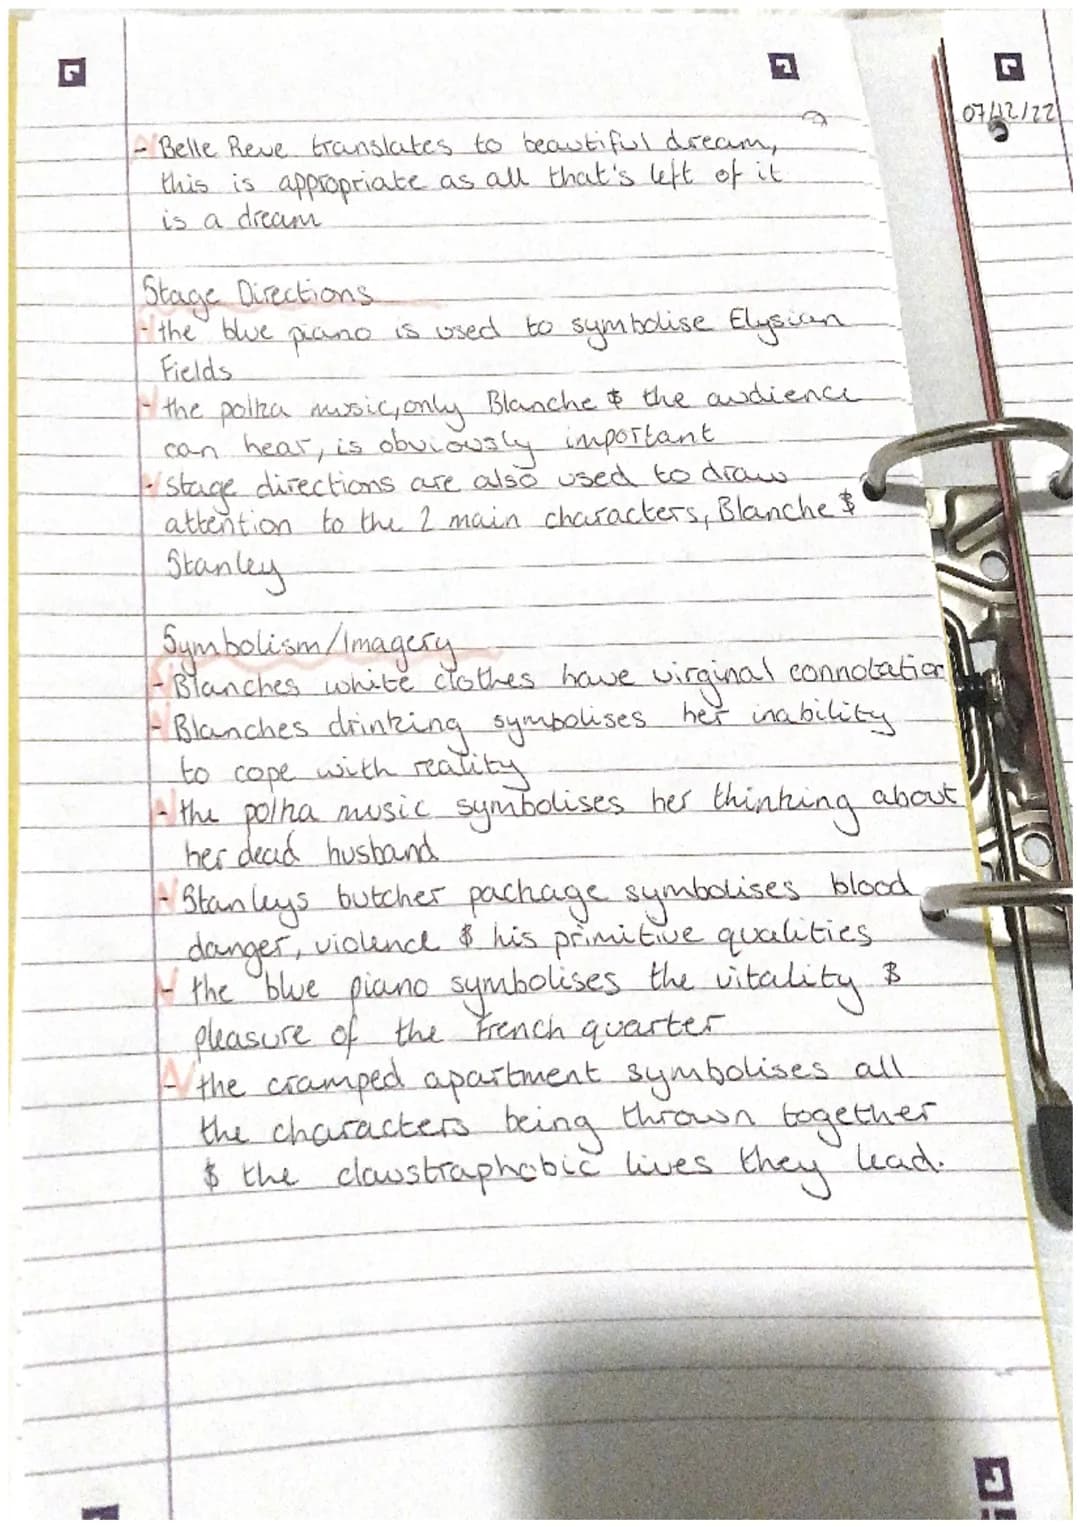 07/12/22
- Belle Reve translates to beautiful dream,
this is appropriate as all that's left of it
is a dream
Stage Directions
- the blue piano is used to symbolise Elysian
Fields
- the polka music, only Blanche & the audience
can hear, is obviously important
- stage directions are also used to draw
attention to the 2 main characters, Blanche &
Stanley
Symbolism/Imagery
- Blanches white clothes have virginal connotation
- Blanches drinking symbolises her inability
to cope with reality
- the polka music symbolises her thinking about
her dead husband
- Stanleys butcher package symbolises blood
danger, violence & his primitive qualities
- the blue piano symbolises the vitality &
pleasure of the French quarter
- the cramped apartment symbolises all
the characters being thrown together
& the claustraphobic lives they lead.